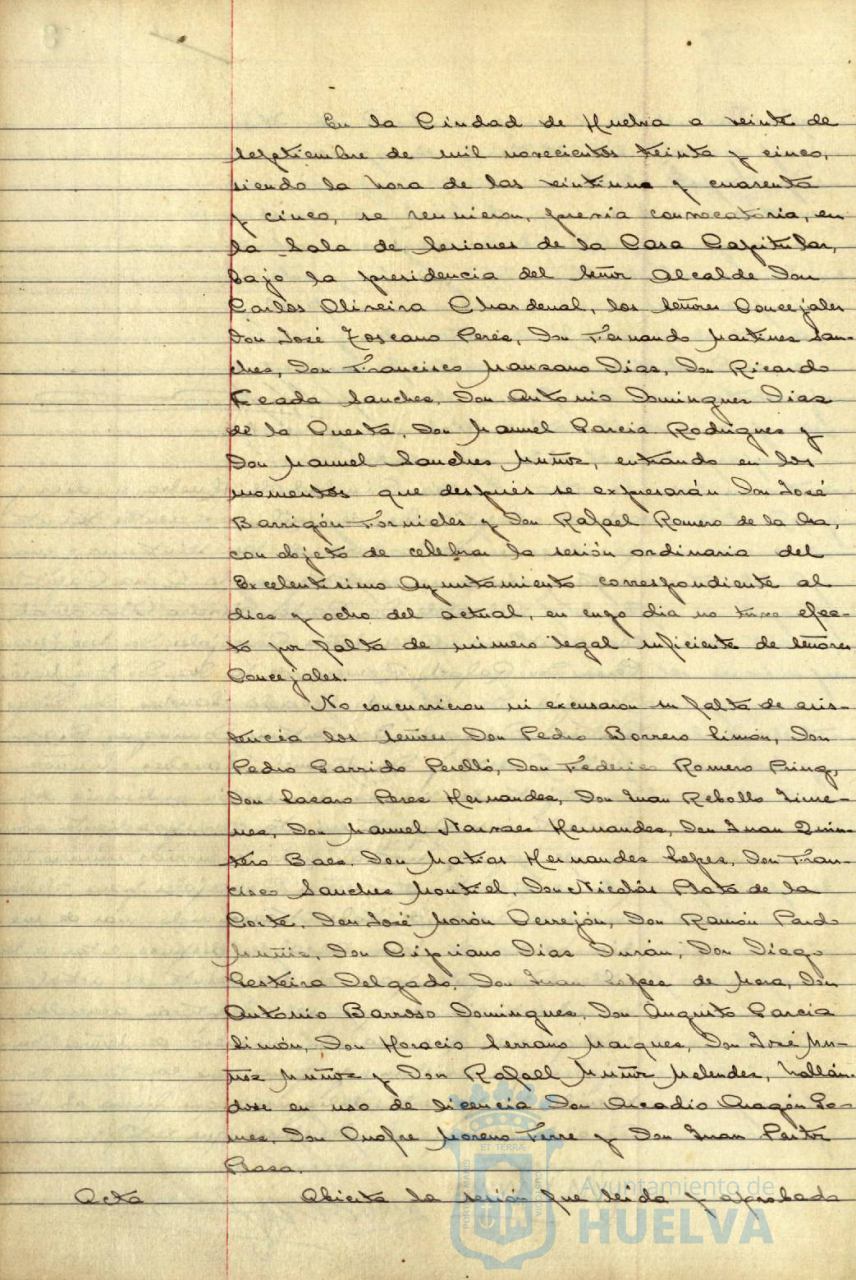 En la Ciudad de Huelva a veinte de
septiembre de mil novecientos treinta y cinco,
siendo la hora de las veintiuna y cuarenta
y cinco, se reunieron, previa convocatoria, en
la Sala de Sesiones de la Casa Capitular,
bajo la presidencia del Señor Alcalde Don
Carlos Oliveira Chardenal, los Señores Concejales
Don José Toscano Peres, Don Fernando Martines San-
ches, Don Francisco Mansano Dias, Don Ricardo
Terrades Sanches, Don Antonio Domingues Dias
de la Cuesta, Don Manuel Garcia Rodrigues y
Don Manuel Sanches Muñoz, entrando en los
momentos que después se expresarán Don José
Barrigón Fornieles y Don Rafael Romero de la Osa,
con objeto de celebrar la sesión ordinaria del
Excelentisimo Ayuntamiento correspondiente al
dies y ocho del actual, en cuyo dia no tuvo efec-
to por falta de número legal suficiente de Señores
Concejales.
No concurrieron ni excusaron su falta de asis-
tencia los Señores Don Pedro Borrero Limón, Don
Pedro Garrido Perelló, Don Federico Romero
Don Lasaro Peres Hernandes, Don Juan Rebollo Jime-
nes, Don Manuel Narvaes Hernandes, Don Juan Quin-
tero Baes, Don Matias Hernandes Lopes, Don Fran-
cisco Sanches Montiel, Don Nicolás Plata de la
Corte, Don José Morón Cerrejón, Don Ramón Pardo
Muñiz, Don Cipriano Dias Durán, Don Diego
Lesteira Delgado, Don Juan Lopes de Mora, Don
Antonio Barroso Domingues, Don Augusto Garcia
Limón, Don Horacio Serrano Marques, Don José Mu-
ñoz Muñoz y Don Rafael Muñoz Melendes, hallán-
dose en uso de licencia Don Arcadio Aragón Go-
mes, Don Onofre Moreno Terre y Don Juan
Plasa.
Acta Abierta la sesión fue leida y aprobada
Ayuntamiento de
HUELVA